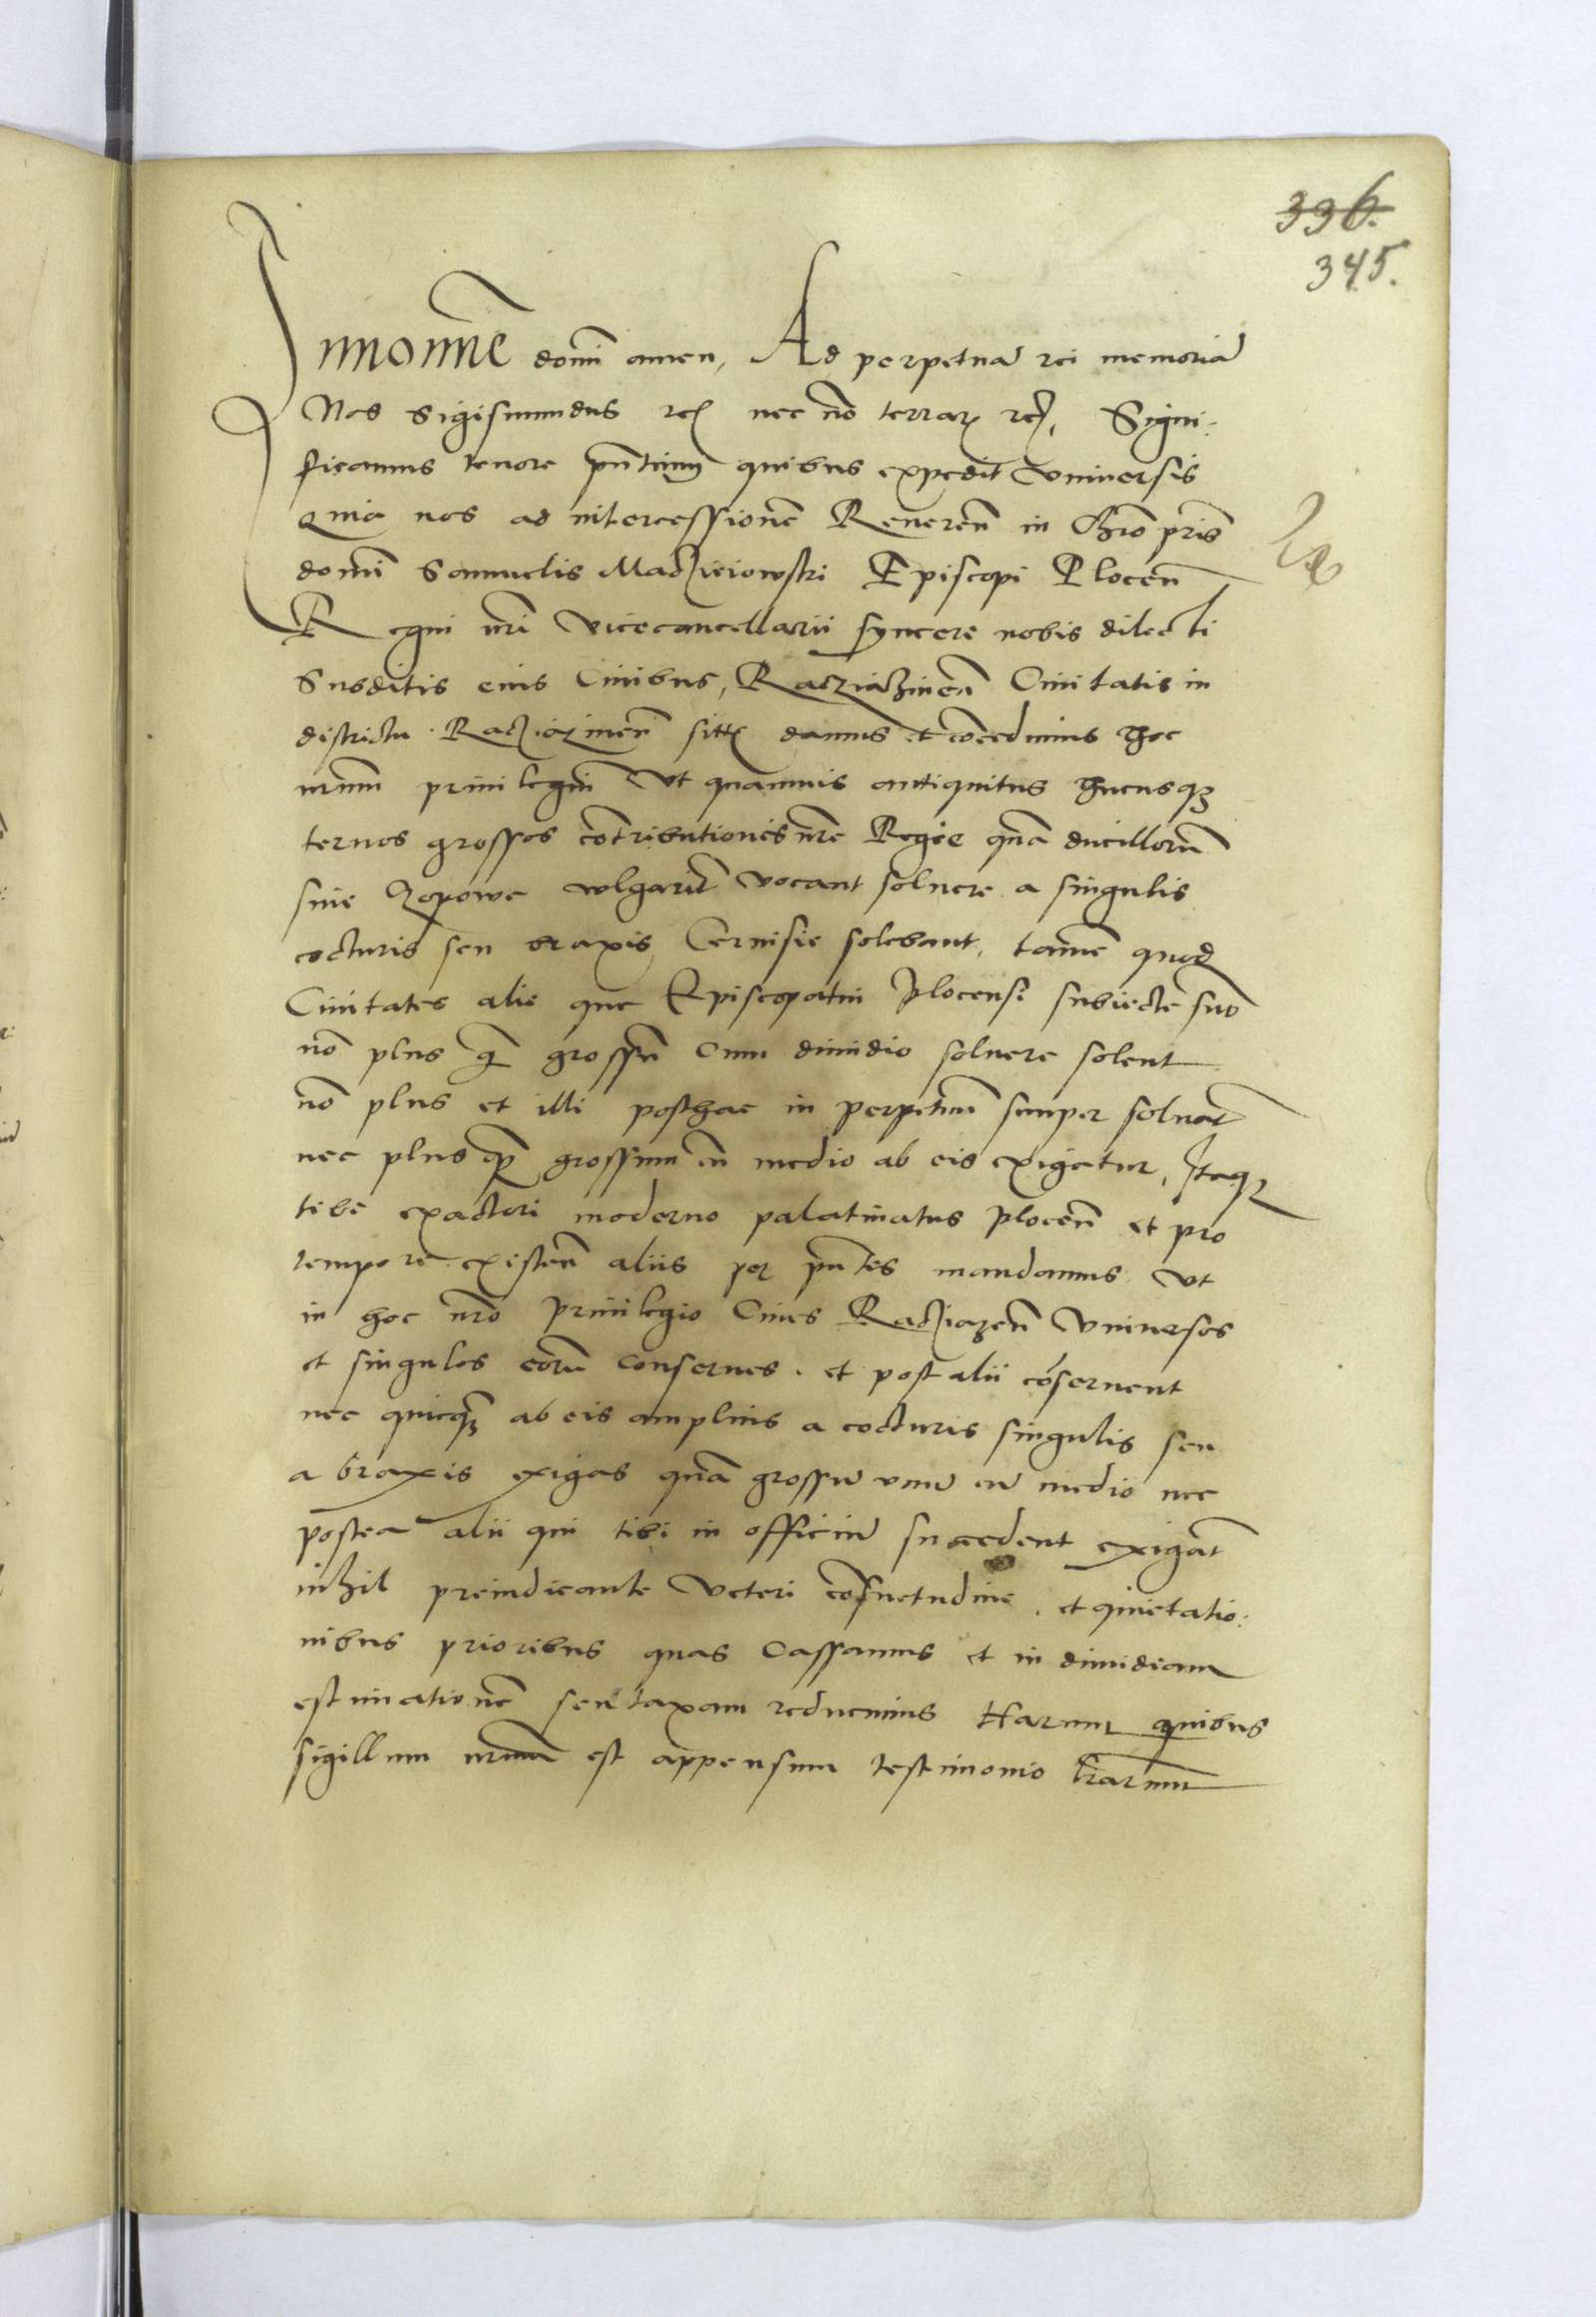 336.
345.
In nomine domi amen, Ad perpetuā rei memoriā
Nos Sigismundus rex nec nō terrarꝫ rex, Signi:
ficamus tenore pn̄tium quibus expedit Vniuersis
Quia nos ad intercessionē Reueren̄ in Chro pris
domi Samuelis Maczieiowski Episcopi Plocen̄
Regni nri Vicecancellarii syncere nobis dilecti
Subditis eius Ciuibus, Racziazinen̄ Ciuitatis in
districtu Racziazinen̄ damus et cōcedimus hoc
nrum priuilegiū Vt quamuis antiquitus hucusqꝫ
ternos grossos cōtributionis nrē Regie quā ducillorū
siue Czopowe wlgariter vocant soluere a singulis
cocturis seu braxis Ceruisie solebant, tamē quod
Ciuitates alie que Episcopatui Plocensi subiecte sūt
nō plus qꝫ grossū Cum dimidio soluere solent
nō plus et illi posthac in perpetuū semper soluāt
nec plus qꝫ grossum cū medio ab eis exigatur, Itaqꝫ
tibi exactori moderno palatinatus Plocen̄ et pro
tempore existen̄ aliis per pn̄tes mandamus Vt
in hoc nrō Priuilegio Ciues Racziazen̄ Vniuersos
et singulos eorū conserues . et post alii cōseruent
nec quicqꝫ ab eis amplius a cocturis singulis seu
a braxis exigas quā grossū vnū cū medio nec
postea alii qui tibi in officiū succedent exigāt
nihil preiudicante Veteri cōsuetudine, et quietatio:
nibus prioribus quas Cassamus et in dimidiam
estimationē seu taxam reducimus Harum quibus
sigillum nrum est appensum testimonio lrarum